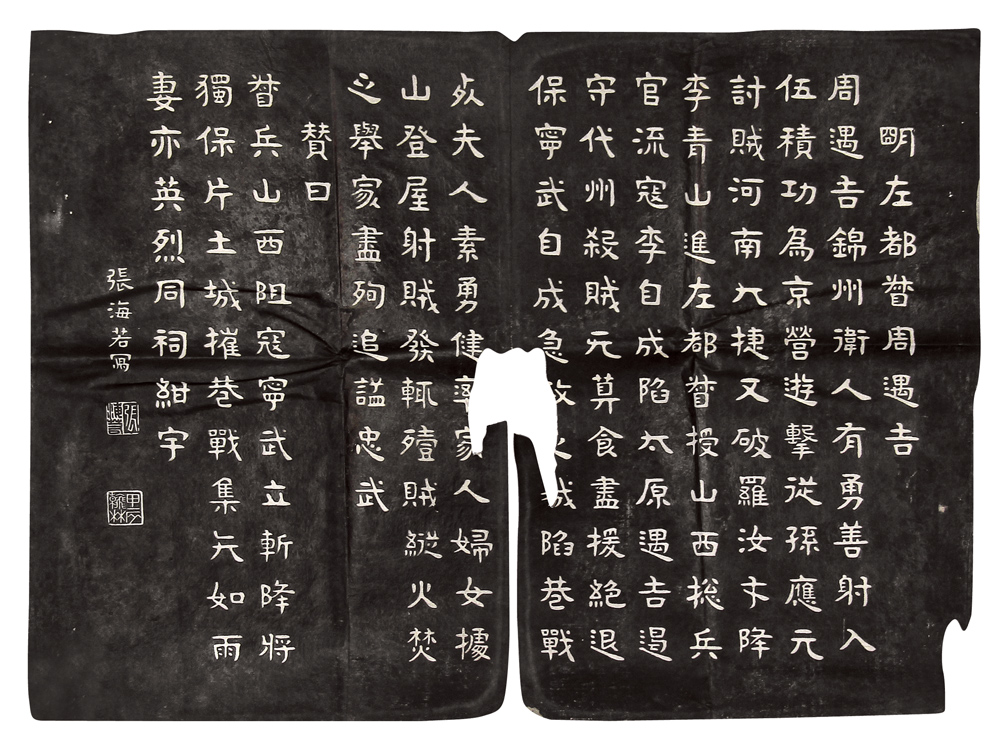 明左都督周遇吉
周遇吉錦州衛人有勇善射入
伍積功為京營遊擊從孫應元
討賊河南大捷又破羅汝才降
李青山進左都督授山西總兵
官流寇李自成陷太原遇吉遏
守代州殺賊无算食盡援絕退
保寧武自成急陷巷戰
死夫人素勇健家人婦女據
山登屋射賊發輒殪賊縱火焚
之舉家盡殉追謚忠武
贊曰
督兵山西阻寇寧武立斬降將
獨保片土城摧巷戰集矢如雨
妻亦英烈同祠紺宇
張海若寫